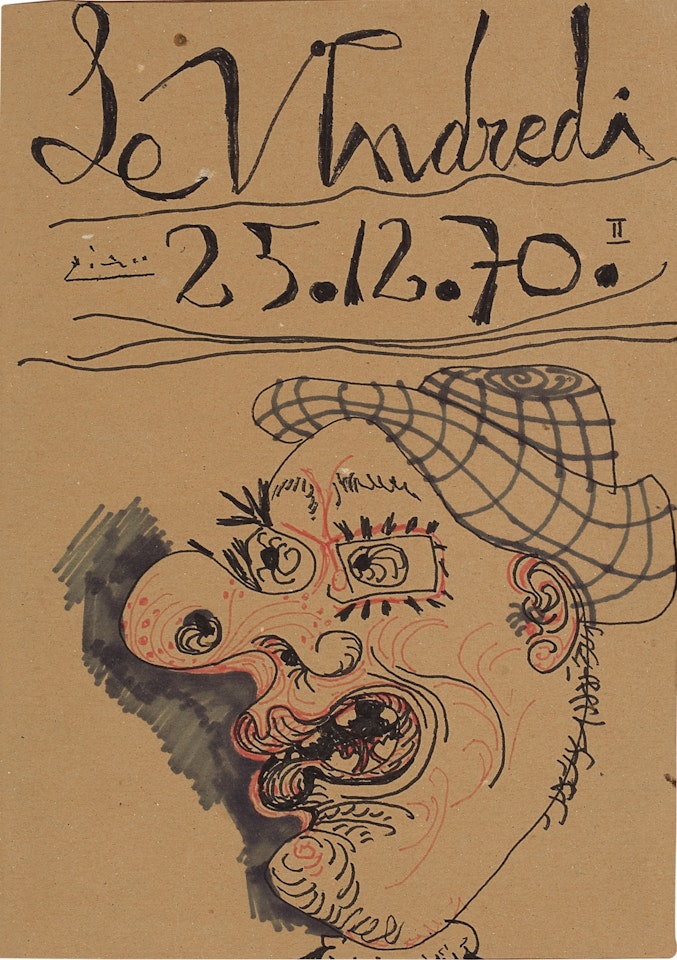 Le Vendredi
25.12.70. II